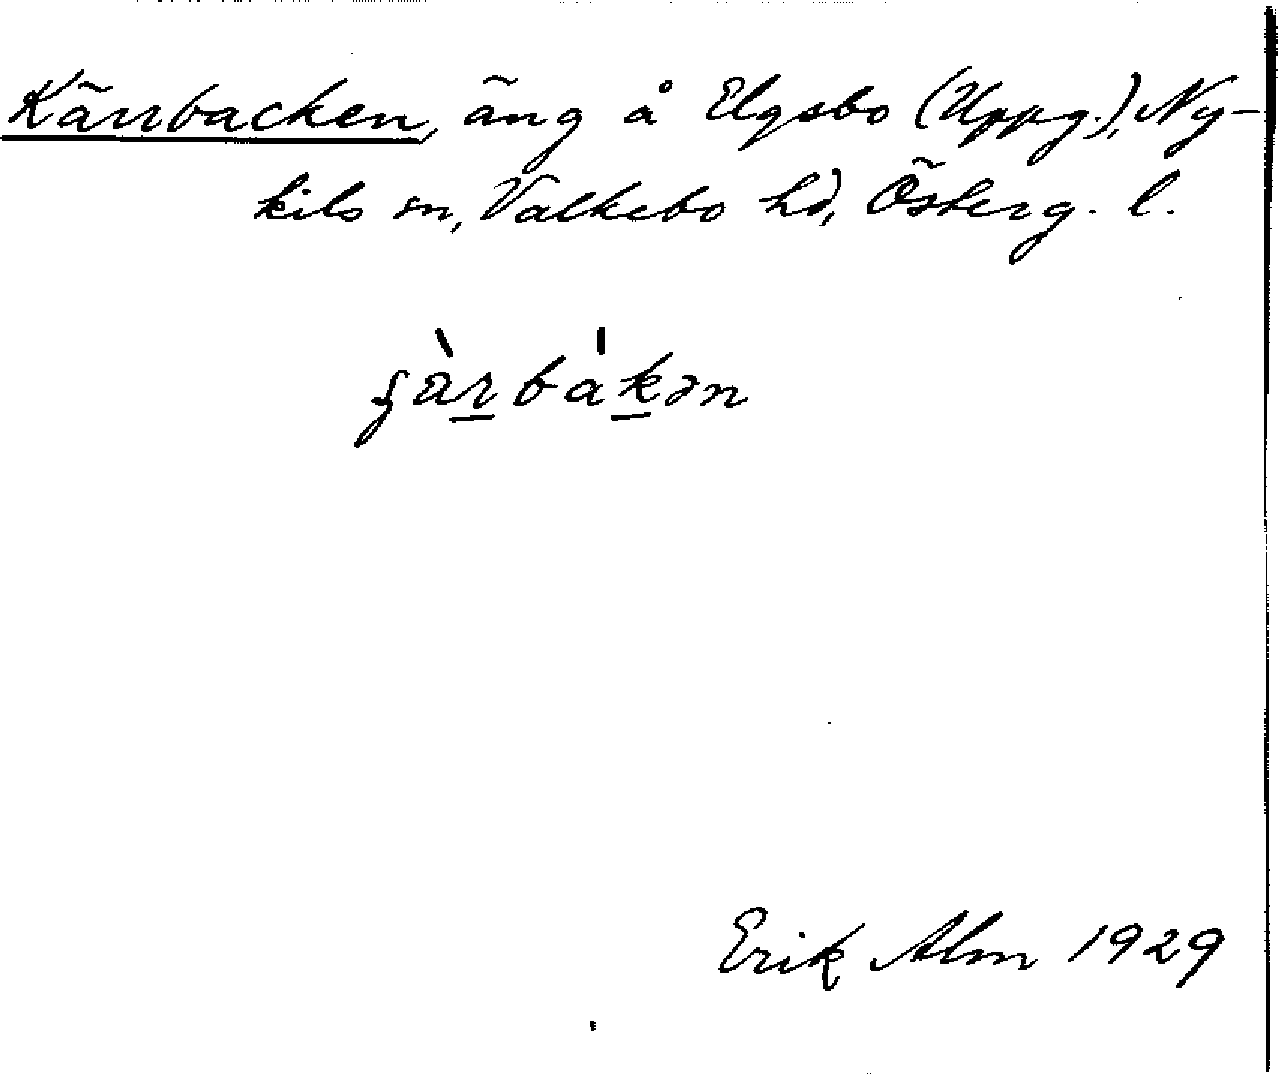 Kärrbacken, äng å Elgsbo (Uppg.), Ny-
kils sn, Valkebo hd, Österg. l.
ʃàrbákən
Erik Alm 1929